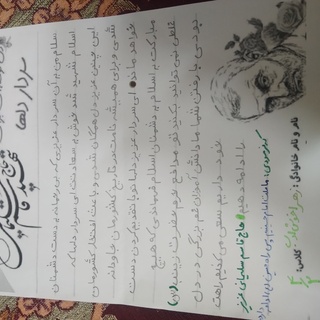 شهید حاج قاسم سلیمانی
سردار دلها
سلام من به آن سردار عزیزی که بی رحمانه به دست دشمنان
اسلام شهید شد خوش به سعادتت ای سردار دلها که
این چنین عزیز دل همگان شدی و باعث افتخار کشورمان
شدی و برای همیشه نامت در تاریخ کشورمان جاودانه
خواهد ماند ای سردار عزیز دلها تو با تقدیم کردن دست
مبارکت به اسلام به دشمنان اسلام فهماندی که هیچ
غلطی نمی توانند بکنند تو مدافع حرم حضرت زینب (س)
بودی با رفتنت ما دانش آموزان غم بزرگی در دل
خود داریم سعی می کنیم راهت
را ادامه دهیم حاج قاسم سلیمانی عزیز
که فرمودی: ما ملت امام حسینیم پس راه حسین
نام و نام خانوادگی: زهرا
کلاس: